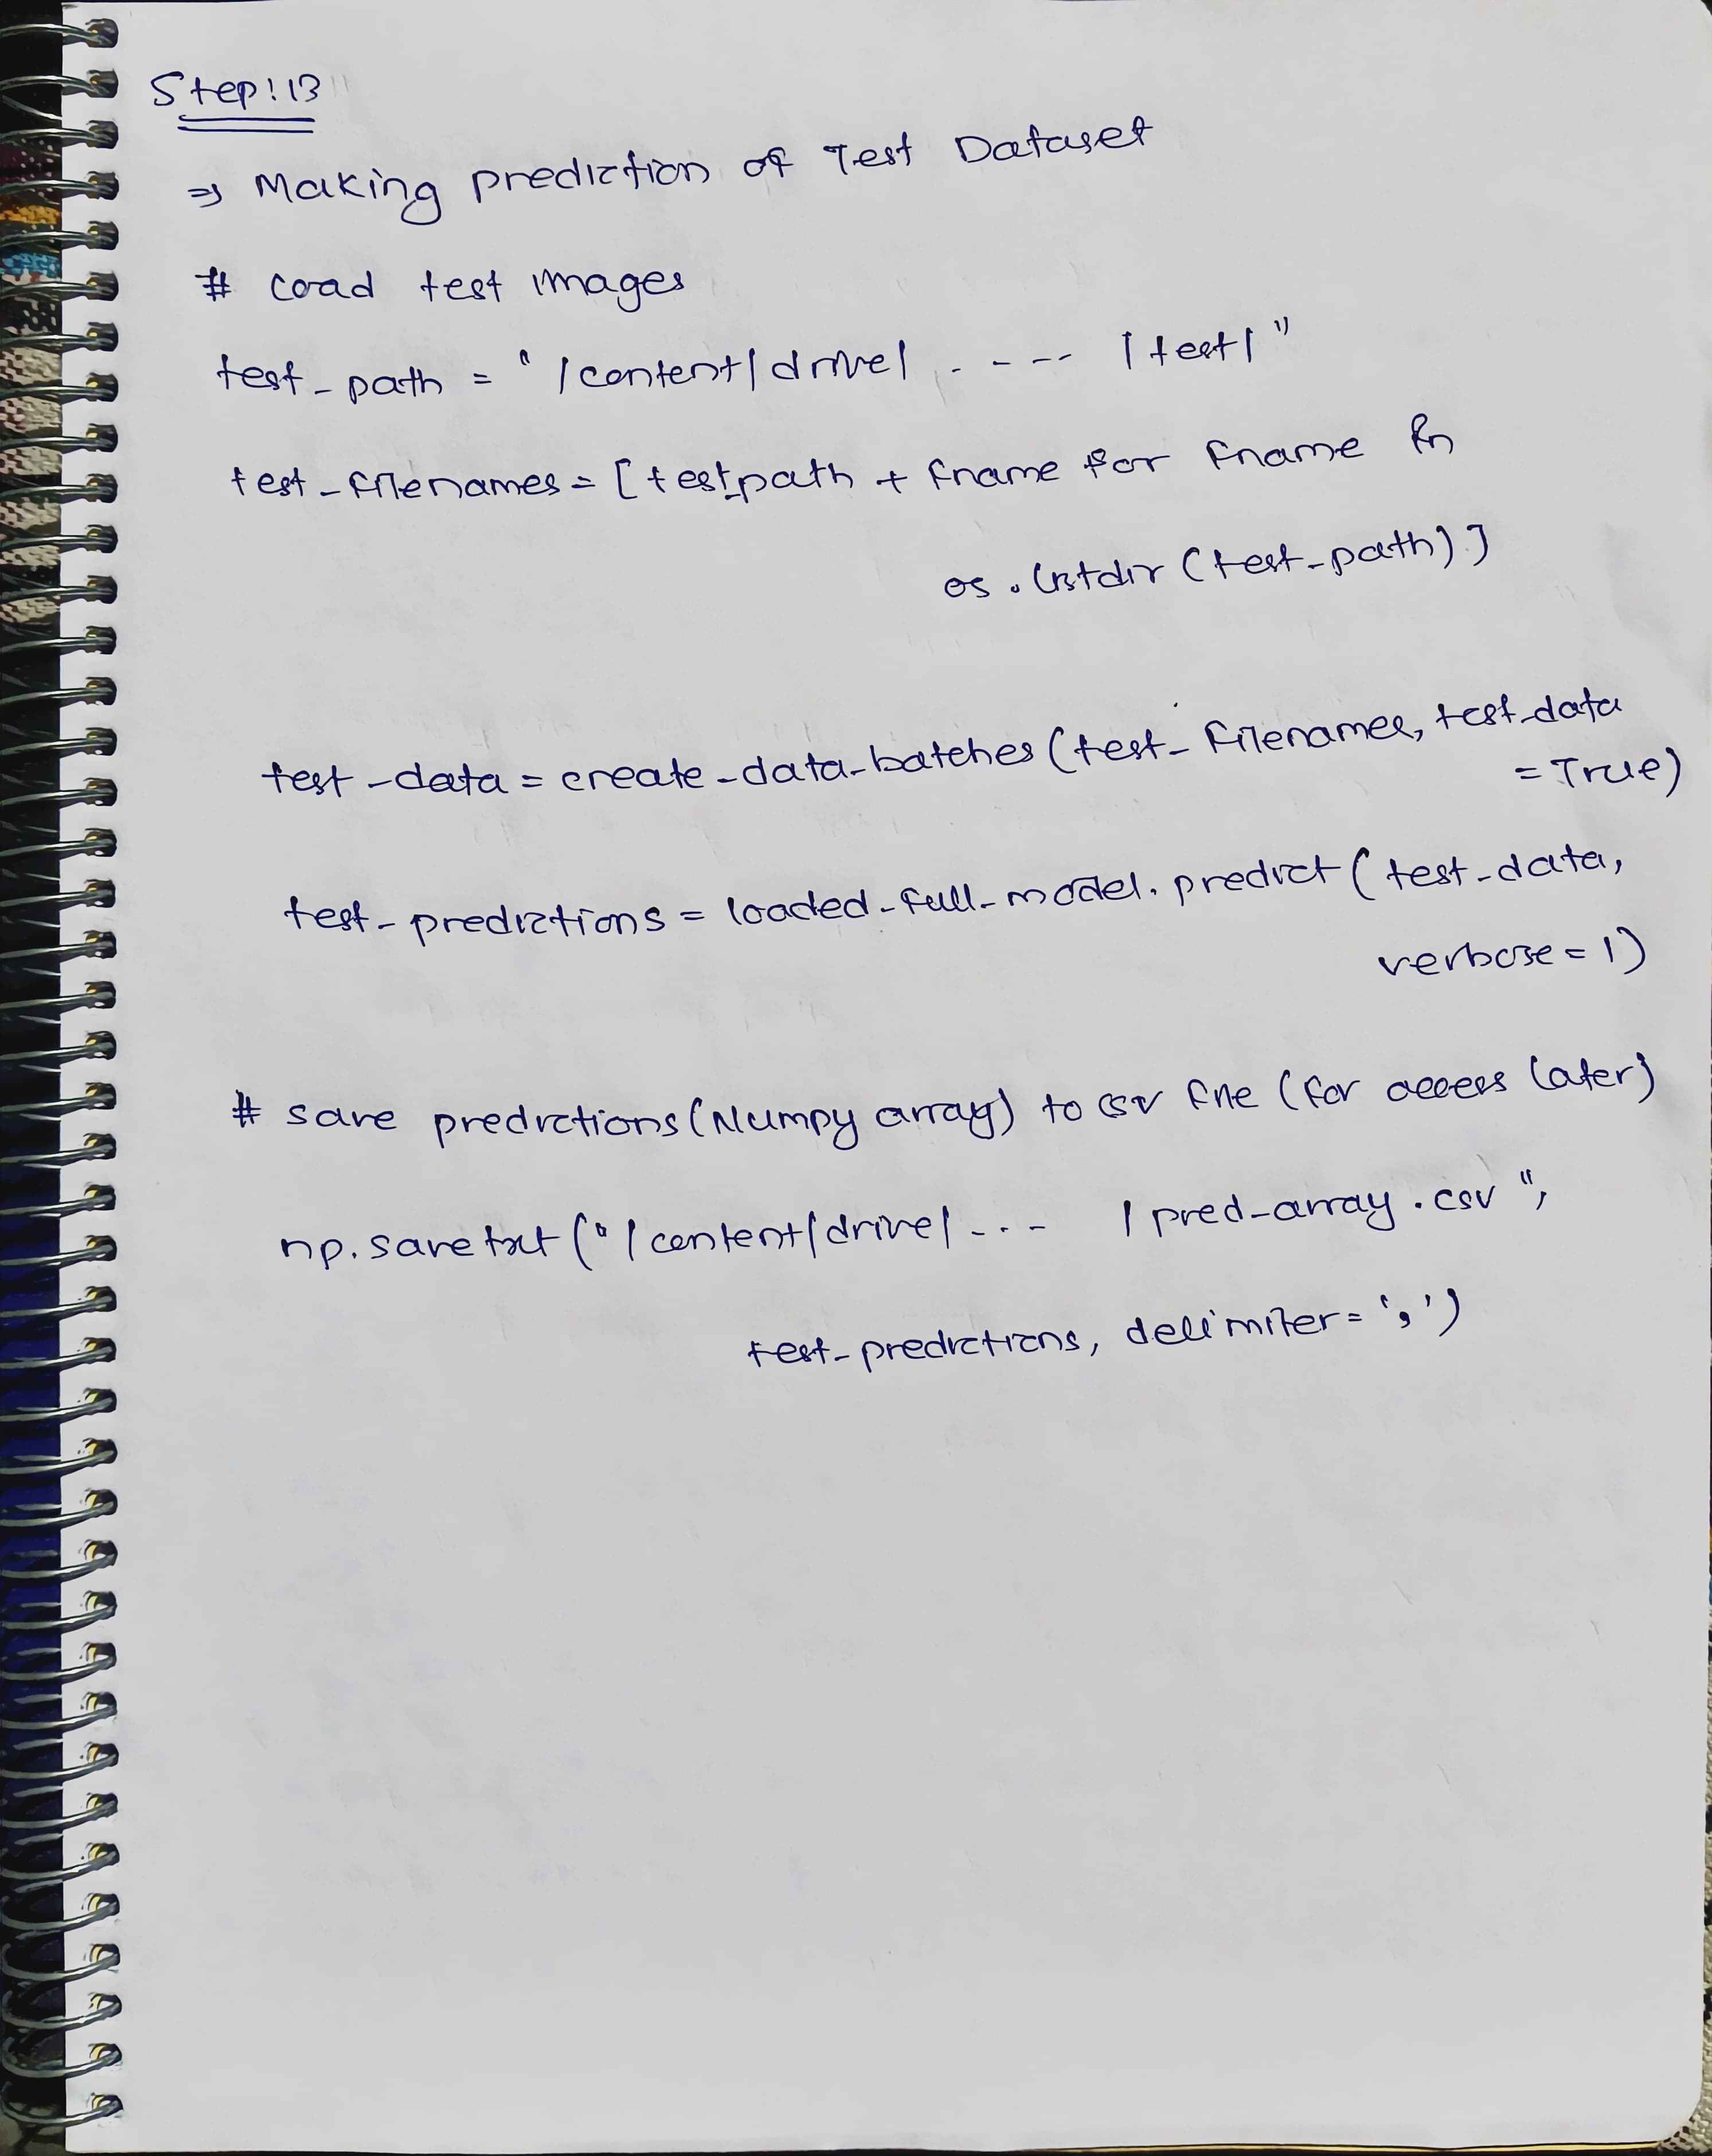 Step: 13
⇒ Making prediction of Test Dataset
# Load test images
test_path = "/content/drive/ . - -- /test/"
test_filenames = [test_path + fname for fname in
os.listdir(test_path)]
test_data = create_data_batches(test_filenames, test_data
= True)
test_predictions = loaded_full_model.predict(test_data,
verbose = 1)
# save predictions (Numpy array) to csv file (for access later)
np.savetxt("/content/drive/ - . - /pred_array.csv",
test_predictions, delimiter = ',')